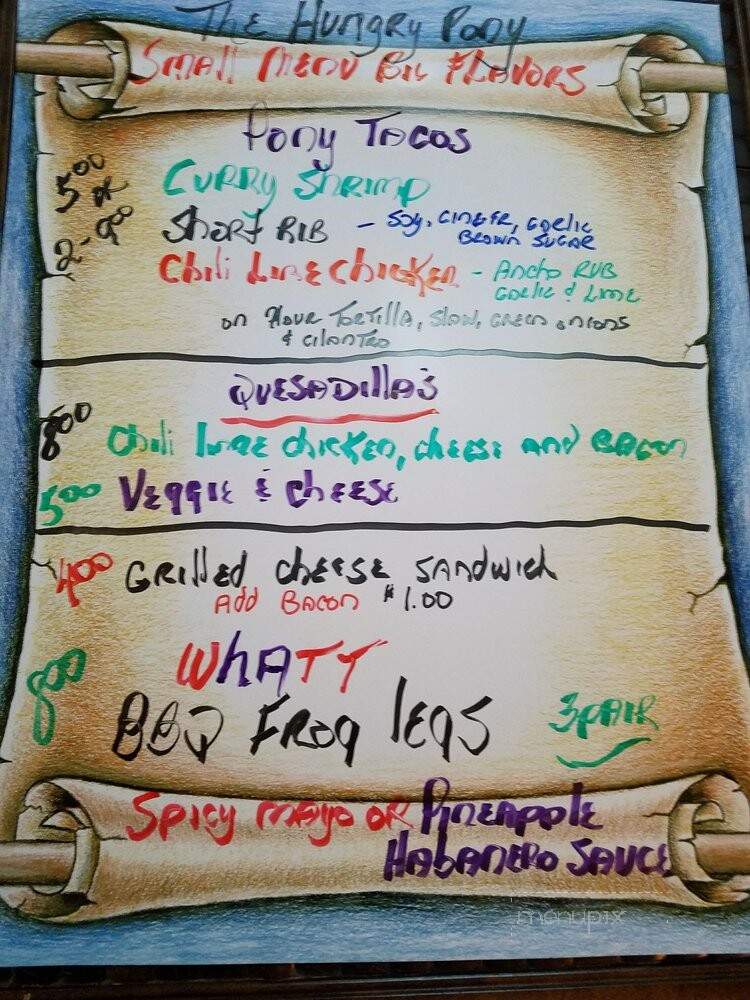 The Hungry Pony
Small Menu Big Flavors
Pony Tacos
5⁰⁰ or
2-9⁰⁰
Curry Shrimp
Short Rib - Soy, Ginger, Garlic
Brown Sugar
Chili Lime Chicken - Ancho Rub
Garlic & Lime
on Flour Tortilla, Slaw, Green onions
& Cilantro
Quesadilla's
8⁰⁰ Chili Lime Chicken, Cheese and Bacon
5⁰⁰ Veggie & Cheese
4⁰⁰ Grilled Cheese Sandwich
Add Bacon $1.00
WHATT
8⁰⁰ BBQ Frog legs 3 pair
Spicy Mayo or Pineapple
Habanero Sauce
menupix